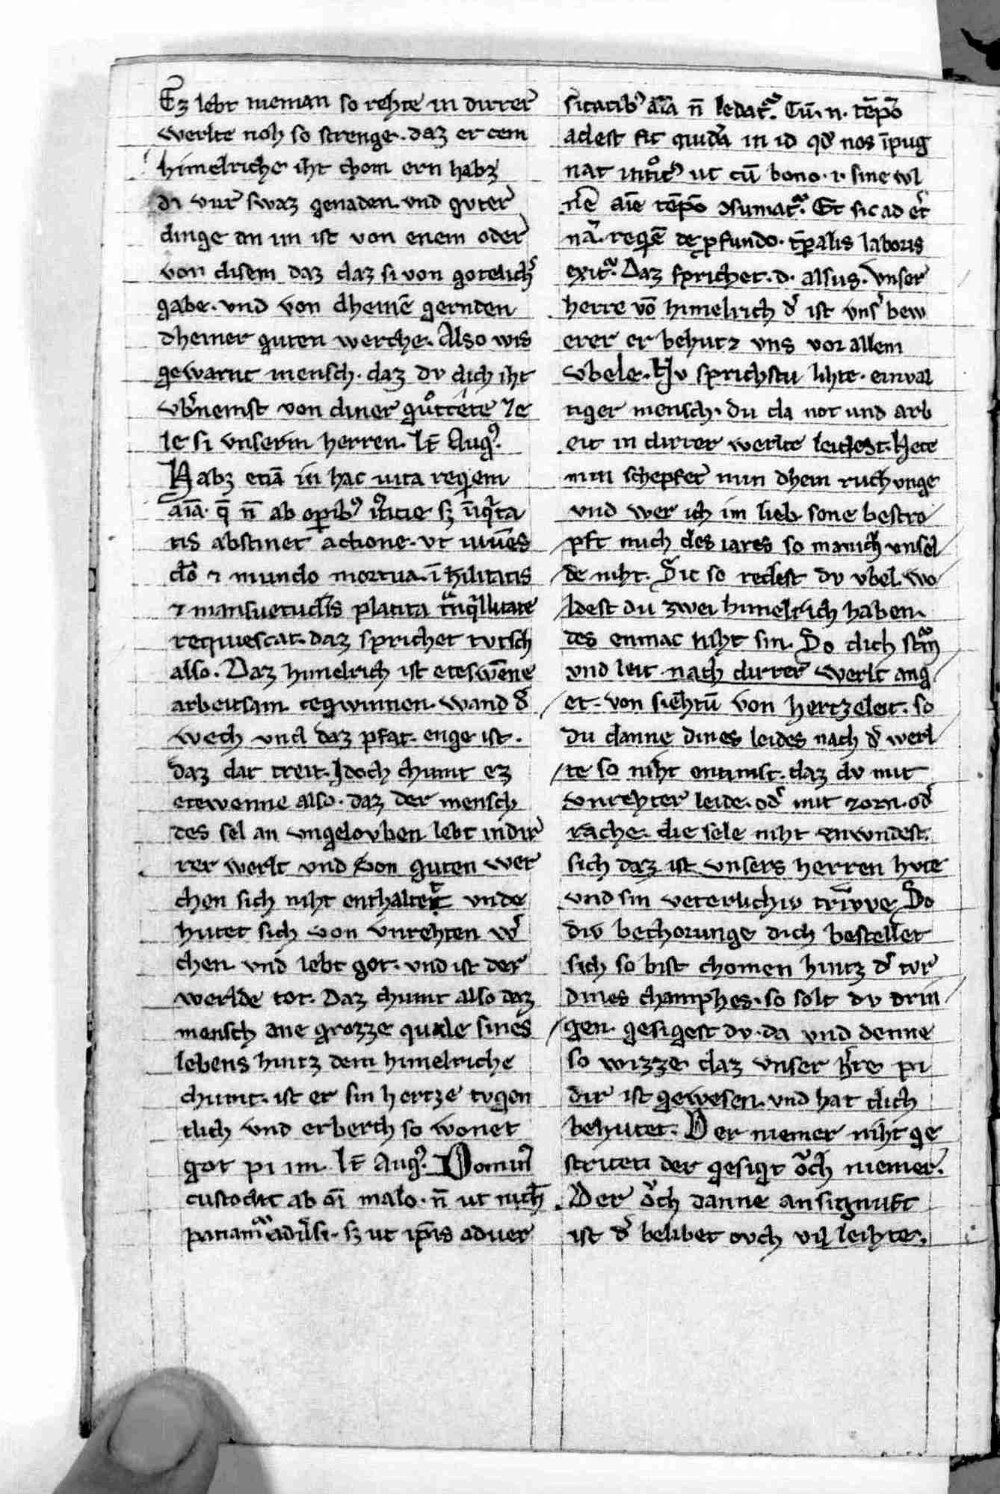 Ez lebt nieman so rehte in dirrer
werlte noh so strenge. daz er cem
himelriche iht chom ern habz
di vur swaz genaden vnd guter
dinge an im ist von enem oder
von disem daz daz si von gotelich̾
gabe. vnd von dheinē gernden
dheiner guten werche. Also wis
gewarnt mensch. daz dv dich iht
vb̾nemst von diner guͦttete
le si vnserm herren. It̄ Augꝰ.
Habz etiā in hac uita reqiem
aīa. q̄ n̄ ab opibꝰ
tis abstinet actione. vt
dō ⁊ mundo mortua. ī hͥilitatis
⁊ mansuetudīs platita
requiescat. daz sprichet tvtsch
also. Daz himelrich ist eteswēne
arbeitsam cegwinnen. wand d̾
wech vnd daz pfat. enge ist.
daz dar treit. Jdoch chumt ez
etewenne also. daz der mensch
des sel an vngelovben lebt in dir
rer werlt vnd von guten wer
chen sich niht enthaltet vnde
hutet sich von vnrehten w̾
chen vnd lebt got. vnd ist der
werlde tot. Daz chumt also daz
mensch ane grozze quale sines
lebens hintz dem himelriche
chumt. ist er sin hertze tvgen
tlich vnd erberch so wonet
got pi im. It̄ Augꝰ. Domin̾
custodit ab oī malo. n̄ ut nich̄
patiamᷣ ad̾si. sz ut ip̄is aduer
sitatibꝰ aīa n̄ ledatᷣ. Cū. n. tēpᷣo
adest fit quidā in id qd̾ nos īpug
nat ut cū bono. ⁊. sine vl
aīe tēpᷣo ꝯsumatᷣ. Et sic ad et̾
nā. reqiē de ꝓfundo. tp̄alis laboris
exitᷣ. Daz sprichet. d. alsus. vnser
herre vō himelrich d̾ ist vns̾ bew
erer er behut⁊ vns vor allem
vbele. Nv sprichstu lihte. einval
tiger mensch. du da not und arb
eit in dirrer werlte leidest. Hete
min schepfer min dhein ruchunge
vnd wer ich im lieb. sone bestro
pft mich des iares so manich vnsel
de niht. Sic so redest dv vbel. wo
ldest du zwei himelrich haben.
des enmac niht sin. So dich
vnd leit nach dirrer werlt ang
et. von siehtū von hertzeleit. so
du danne dines leides nach d̾ werl
te so niht entnist. daz dv mit
vnrehter leide. od̾ mit zorn. od̾
rache. die sele niht vnwndest.
sich daz ist vnsers herren hvte
vnd sin veterlichiv triwe. So
div bechorunge dich bestellet
sich so bist chomen hintz d̾ tvr
dines champhes. so solt dv drin
gen. gesigest dv. da vnd denne
so wizze daz vnser h̾re pi
dir ist gewesen. vnd hat dich
behutet. Der niemer niht ge
striteti der gesigt ōch niemer.
Der ōch danne ansignuft
ist d̾ belibet ovch vil leihte.